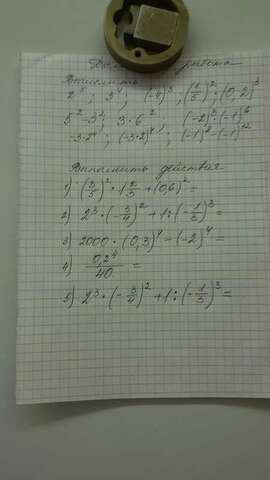 Вычислить
2⁵; 3⁴; (-4)³; (1/5)²; (0,2)³
5²-3²; 3·6²; (-2)³·(-1)⁶
-3·2⁴; (-3·2)⁴; (-1)⁸-(-1)¹²
Выполнить действия
1) (3/5)²·1 2/3+(0,6)²=
2) 2³·(-3/4)²+1:(-1/3)³=
3) 2000·(0,3)⁴-(-2)⁴=
4) 0,2⁴/40=
5) 2³·(-3/4)²+1:(-1/3)³=